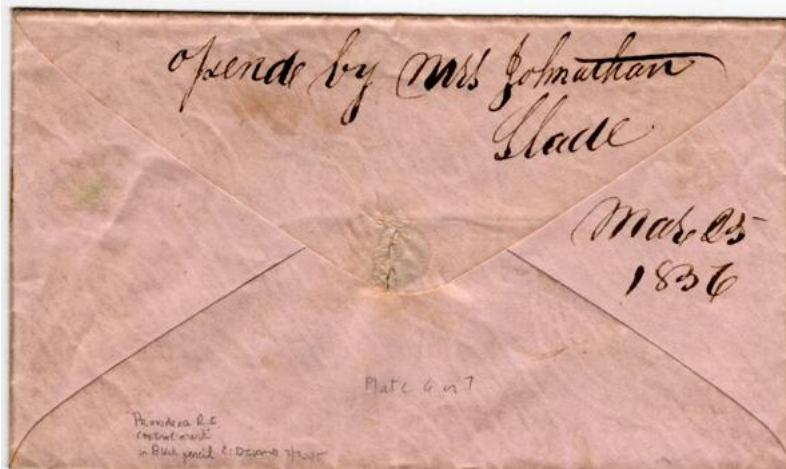 opende by Mrs Johnathan
Slade
Mar 25
1856
Plate 6 or 7
Providence R I
control mark
in Blue pencil